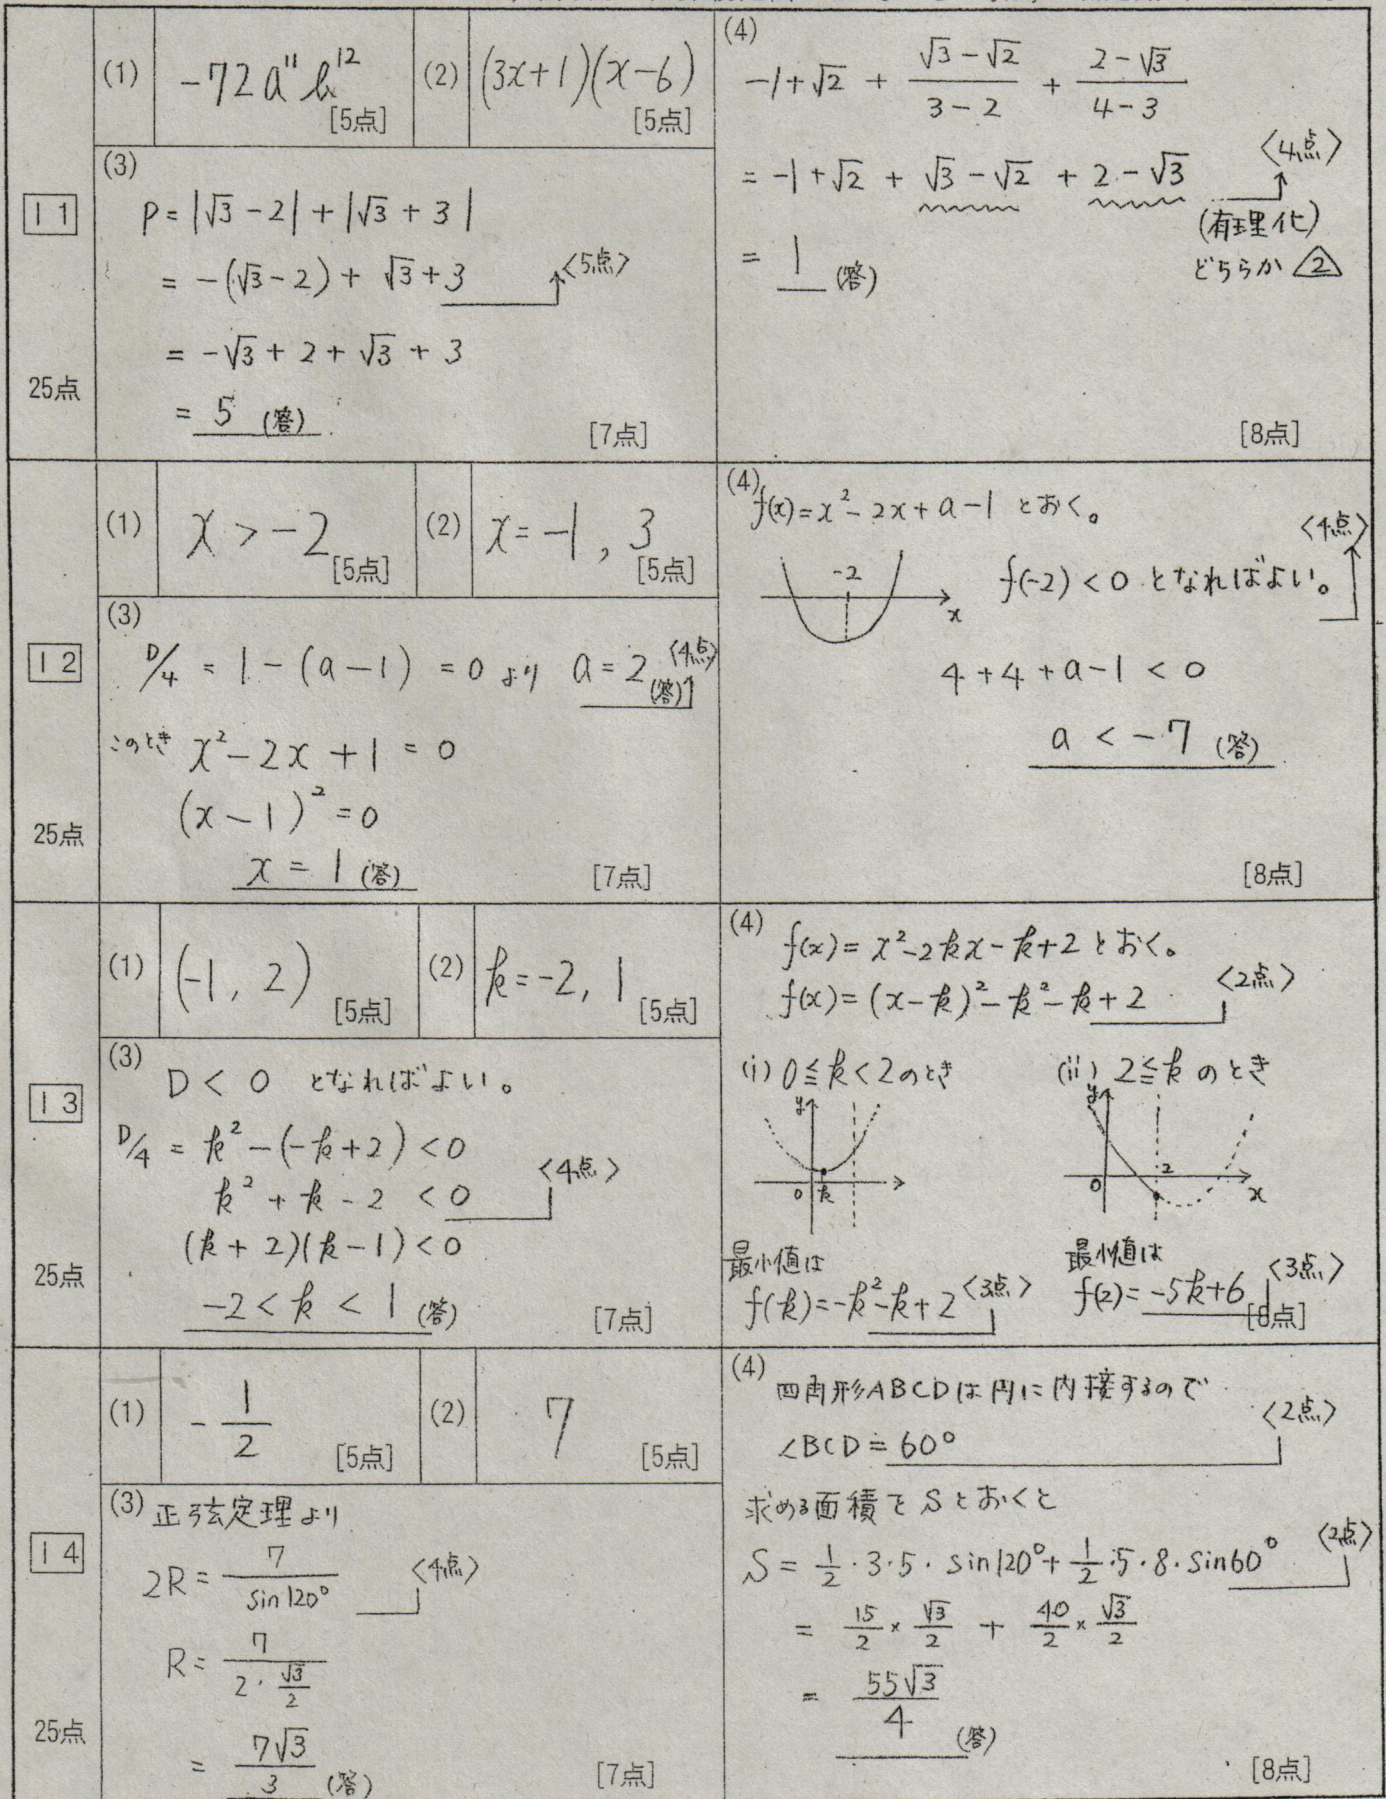 I 1
25点
(1) -72a¹¹b¹² [5点]
(2) (3x+1)(x-6) [5点]
(3)
P = |√3 - 2| + |√3 + 3|
= -(√3 - 2) + √3 + 3 〈5点〉
= -√3 + 2 + √3 + 3
= 5 (答)
[7点]
(4)
-1+√2 + (√3-√2)/(3-2) + (2-√3)/(4-3)
= -1+√2 + √3-√2 + 2-√3 〈4点〉
(有理化)
どちらか △2
= 1 (答)
[8点]
I 2
25点
(1) x > -2 [5点]
(2) x = -1, 3 [5点]
(3)
D/4 = 1-(a-1) = 0 より a = 2 (答) 〈4点〉
このとき x²-2x+1 = 0
(x-1)² = 0
x = 1 (答)
[7点]
(4)
f(x)=x²-2x+a-1 とおく。
-2
x
f(-2) < 0 となればよい。 〈4点〉
4+4+a-1 < 0
a < -7 (答)
[8点]
I 3
25点
(1) (-1, 2) [5点]
(2) k=-2, 1 [5点]
(3)
D < 0 となればよい。
D/4 = k²-(-k+2) < 0
k²+k-2 < 0 〈4点〉
(k+2)(k-1) < 0
-2 < k < 1 (答)
[7点]
(4)
f(x) = x²-2kx-k+2 とおく。
f(x) = (x-k)²-k²-k+2 〈2点〉
(i) 0≦k<2のとき
y
0 k
最小値は
f(k)=-k²-k+2 〈3点〉
(ii) 2≦k のとき
y
0 2 x
最小値は
f(2)=-5k+6 〈3点〉
[8点]
I 4
25点
(1) -1/2 [5点]
(2) 7 [5点]
(3) 正弦定理より
2R = 7/sin120° 〈4点〉
R = 7/(2·√3/2)
= 7√3/3 (答)
[7点]
(4)
四角形ABCDは円に内接するので
∠BCD = 60° 〈2点〉
求める面積を S とおくと
S = 1/2·3·5·sin120°+1/2·5·8·sin60° 〈2点〉
= 15/2 × √3/2 + 40/2 × √3/2
= 55√3/4 (答)
[8点]